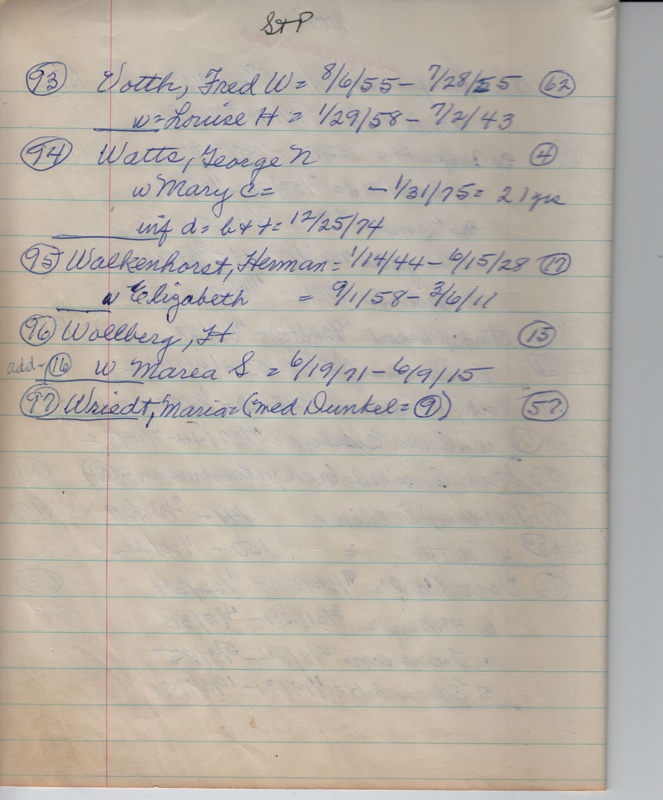 St P
93 Votth, Fred W = 8/6/55 - 7/28/55 62
w = Louise H = 1/29/58 - 7/2/43
94 Watts, George N 4
w Mary C = - 1/31/75 = 21 yrs
inf d = b & t = 12/25/74
95 Walkenhorst, Herman = 1/14/44 - 6/15/28 17
w Elizabeth = 9/1/58 - 3/6/11
96 Wollberg, H 15
add - 16 w Marea S = 6/19/71 - 6/9/15
97 Wriedt, Maria = (med Dunkel = 9) 57